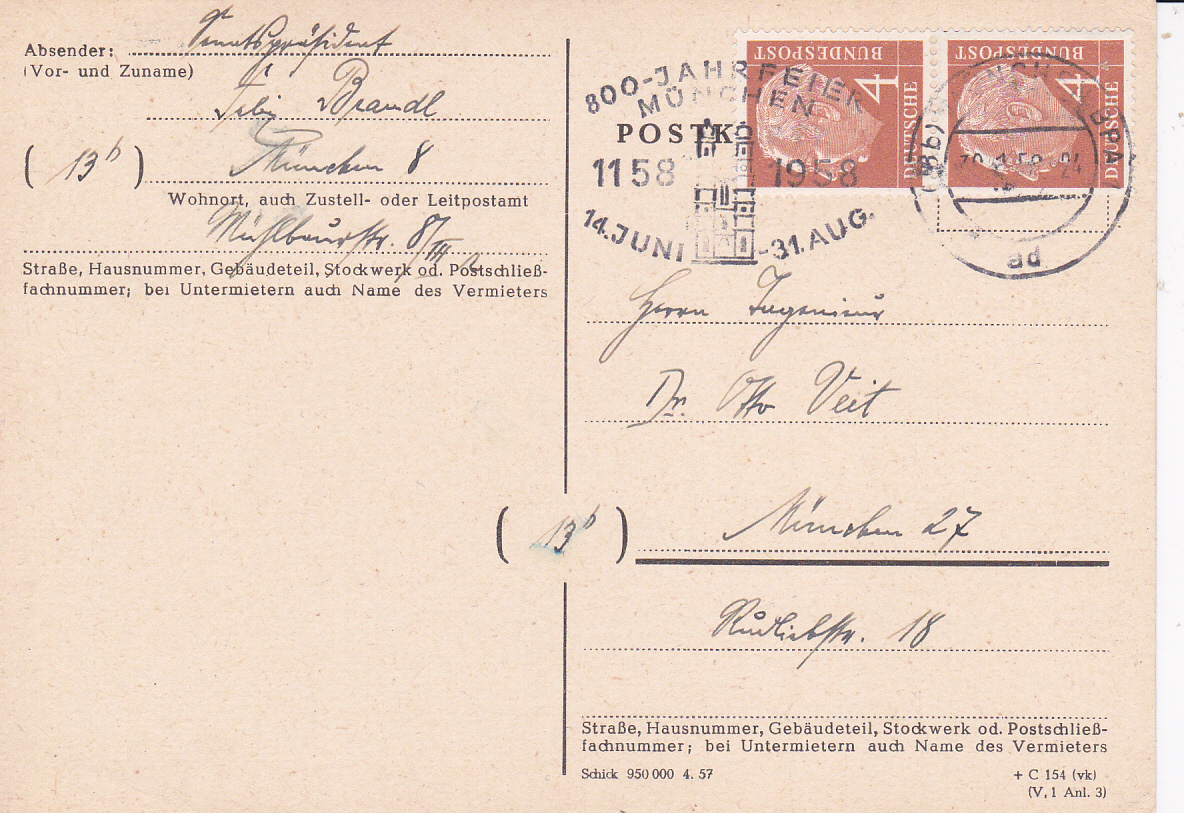 Absender: Senatspräsident
(Vor- und Zuname)
Felix Brandl
(13b) München 8
Wohnort, auch Zustell- oder Leitpostamt
Mühlbaurstr. 8/III
Straße, Hausnummer, Gebäudeteil, Stockwerk od. Postschließ-
fachnummer; bei Untermietern auch Name des Vermieters
POSTK
800-JAHRFEIER
MÜNCHEN
1158 1958
14. JUNI -31. AUG.
4 DEUTSCHE BUNDESPOST
4 DEUTSCHE BUNDESPOST
ad
Herrn Ingenieur
Dr. Otto Veit
(13b) München 27
Rudliebstr. 18
Straße, Hausnummer, Gebäudeteil, Stockwerk od. Postschließ-
fachnummer; bei Untermietern auch Name des Vermieters
Schick 950 000 4. 57
+ C 154 (vk)
(V, 1 Anl. 3)